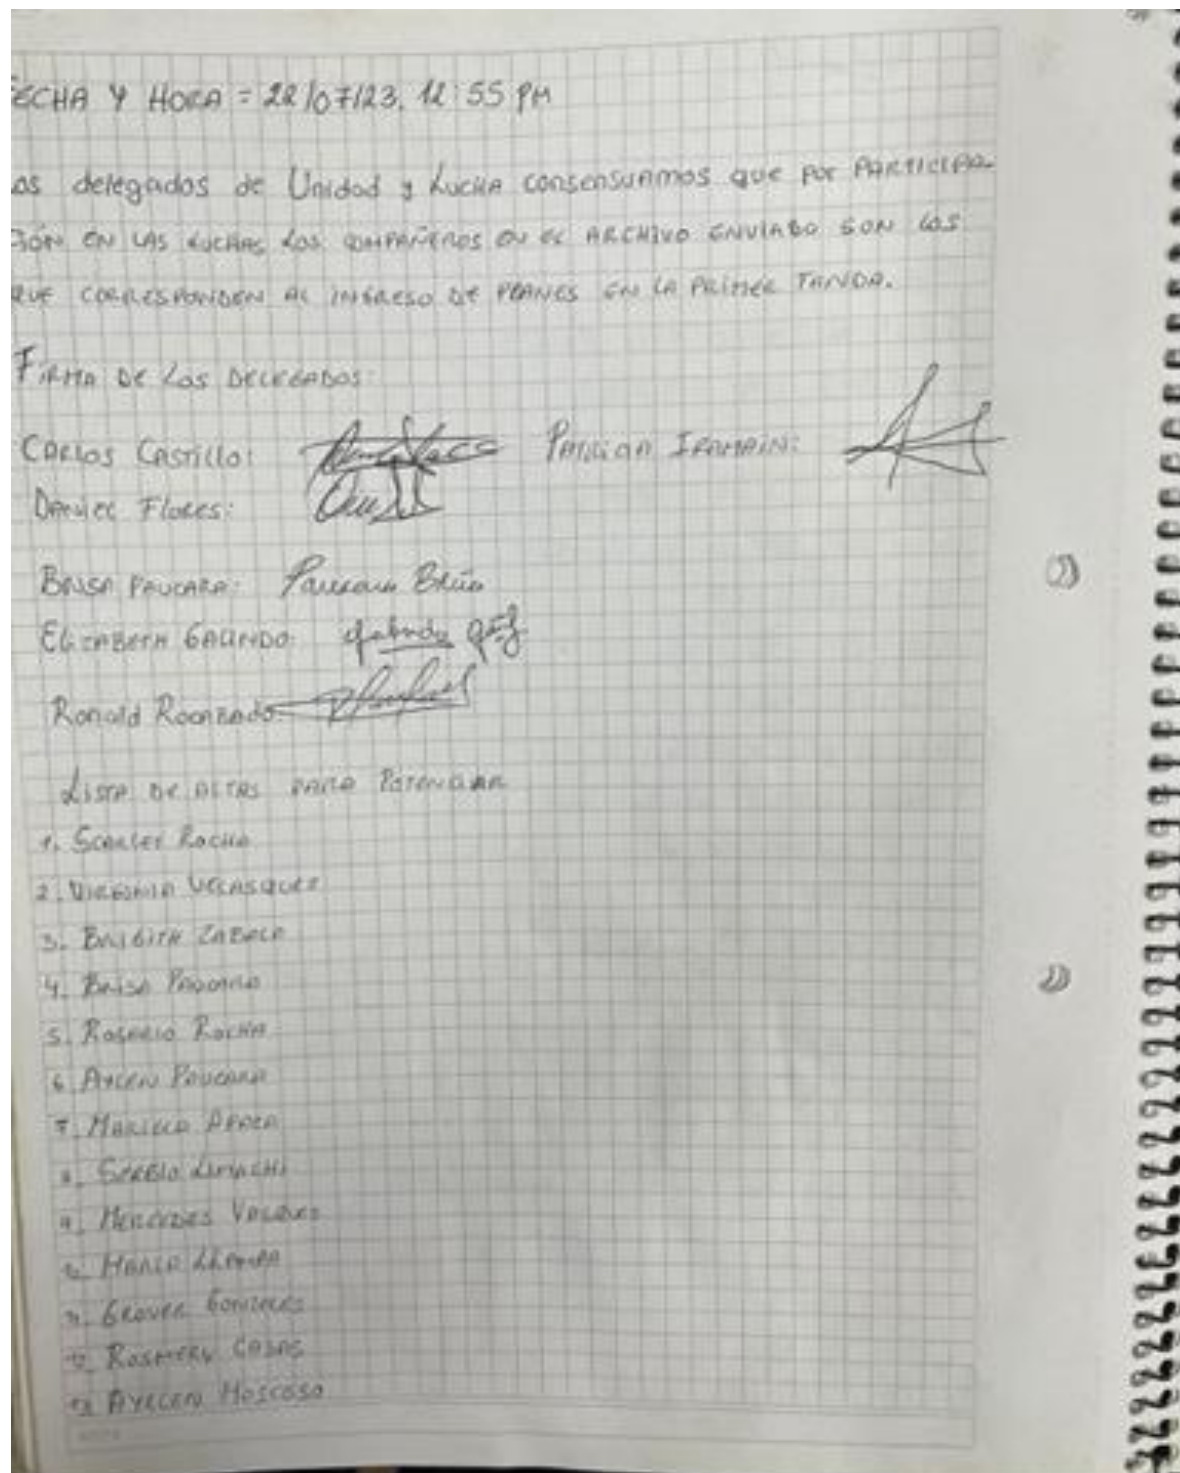 ECHA Y HORA = 22/07/23, 12:55 PM
os delegados de Unidad y LUCHA CONSENSUAMOS QUE POR PARTICIPA-
IÓN EN LAS LUCHAS LOS COMPAÑEROS EN EL ARCHIVO ENVIADO SON LOS
QUE CORRESPONDEN AL INGRESO DE PLANES EN LA PRIMER TANDA.
FIRMA DE LOS DELEGADOS:
CARLOS CASTILLO: PATRICIA IRAMAIN:
DANIEL FLORES:
BRISA PAUCARA: Paucara Brisa
ELIZABETH GALINDO: Galindo
Ronald Rocabado:
LISTA DE ALTAS PARA POTENCIAR
1. SCARLET ROCHA
2. VIRGINIA VELASQUEZ
3. BRIGITH ZABALA
4. BRISA PAUCARA
5. ROSARIO ROCHA
6. AYLEN PAUCARA
7. MARIELA
8. SERGIO LIMACHI
9. MERCEDES
10. MARIA
11. GROVER GONZALES
12. ROSMERY CASAS
13. AYELEN MOSCOSO